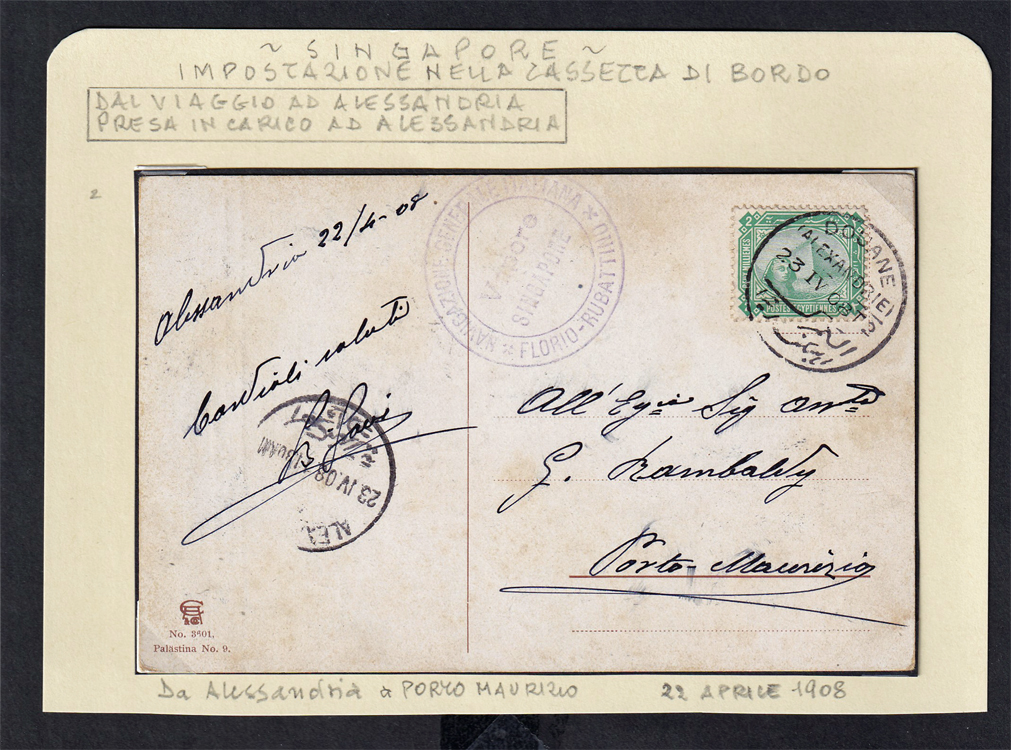 ~ SINGAPORE ~
IMPOSTAZIONE NELLA CASSETTA DI BORDO
DAL VIAGGIO AD ALESSANDRIA
PRESA IN CARICO AD ALESSANDRIA
2
Alessandria 22/4-08.
Cordiali saluti
NAVIGAZIONE GENERALE ITALIANA
FLORIO-RUBATTINO
Vapore
SINGAPORE
2
MILLIEMES
POSTES EGYPTIENNES
DOUANE
(ALEXANDRIE)
23 IV 08
All' Sig
G. Rambaldy
Porto-Maurizio
23 IV 08
ALEX
No. 3601.
Palastina No. 9.
Da Alessandria a PORTO MAURIZIO
22 APRILE 1908